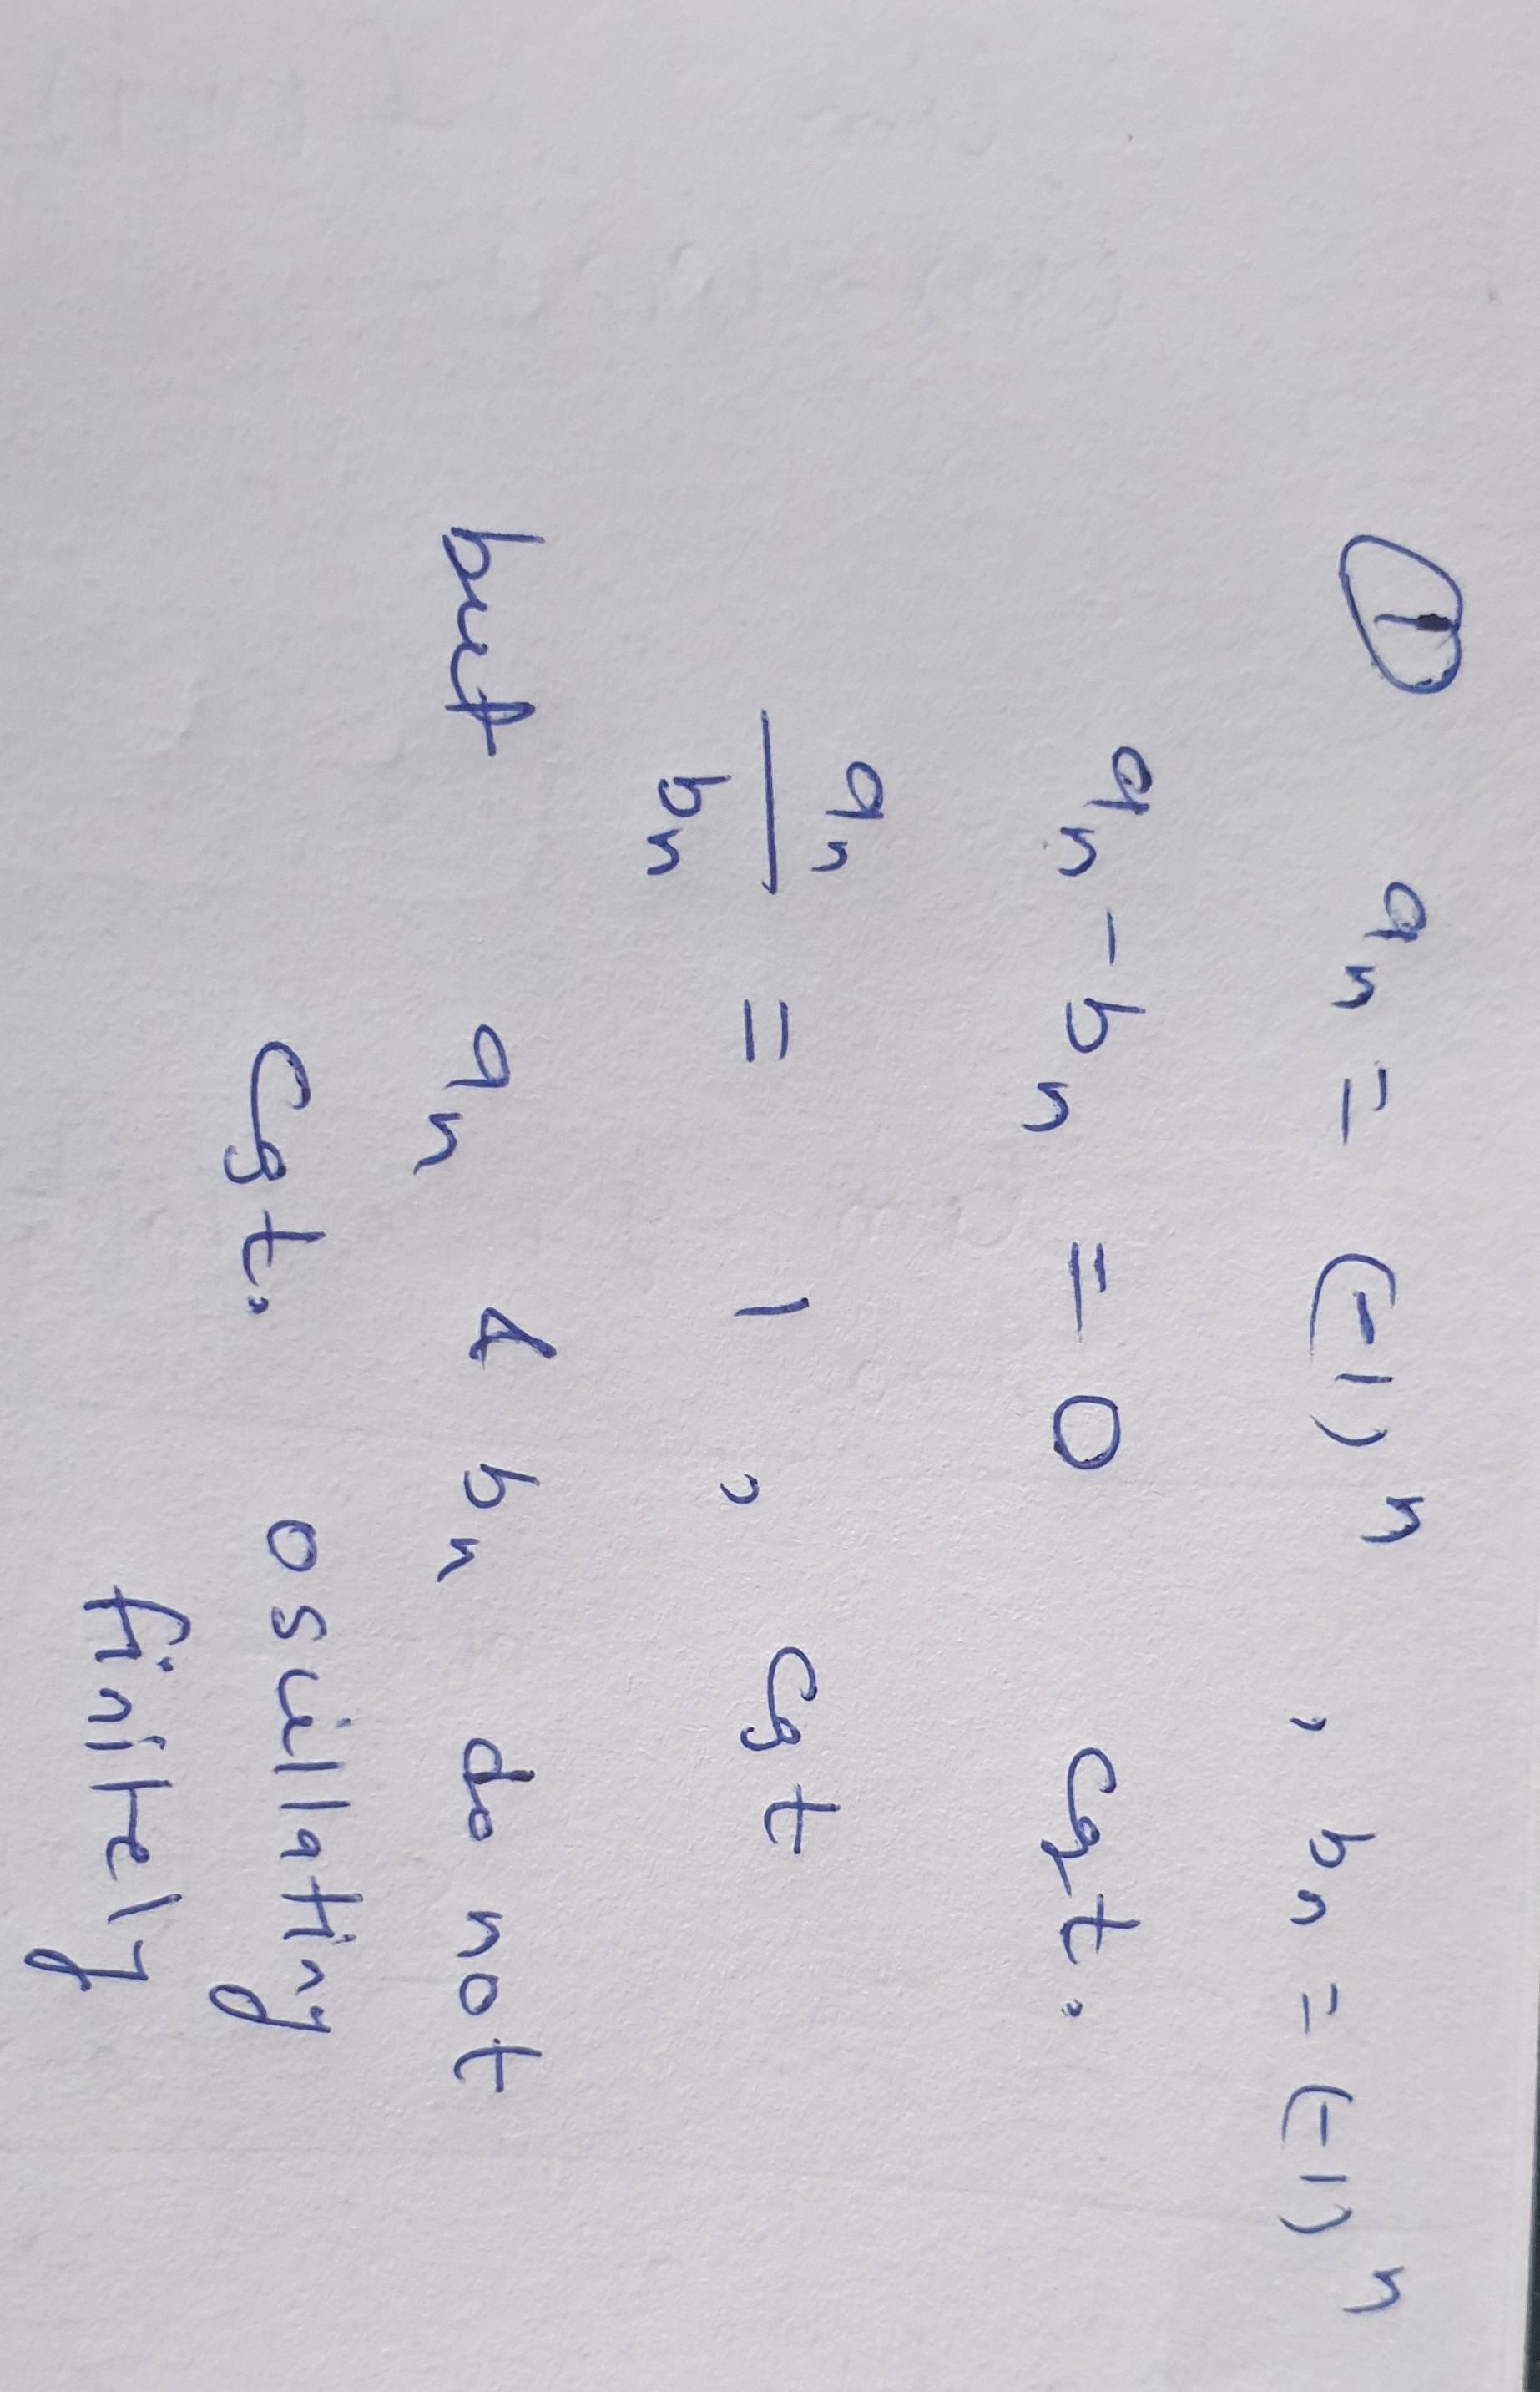 ① aₙ = (-1)ⁿ , bₙ = (-1)ⁿ
aₙ - bₙ = 0 cgt.
aₙ/bₙ = 1 , cgt
but aₙ & bₙ do not
cgt. oscillating
finitely